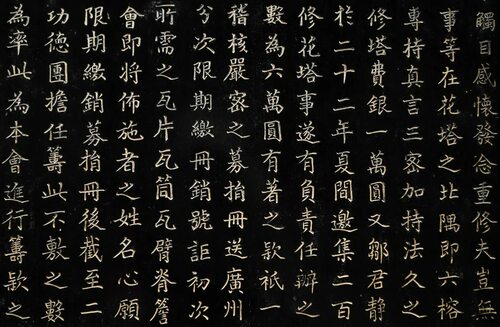 觸目感懷發念重修夫豈無
事等在花塔之北隅即六榕
專持真言三密加持法久之
修塔費銀一萬圓又鄒君靜
於二十二年夏間邀集二百
修花塔事遂有負責任辦之
數為六萬圓有著之款祇一
稽核嚴密之募捐冊送廣州
分次限期繳冊銷號詎初次
所需之瓦片瓦筒瓦臂脊簷
會即將佈施者之姓名心願
限期繳銷募捐冊後截至二
功德團擔任籌此不敷之數
為率此為本會進行籌款之